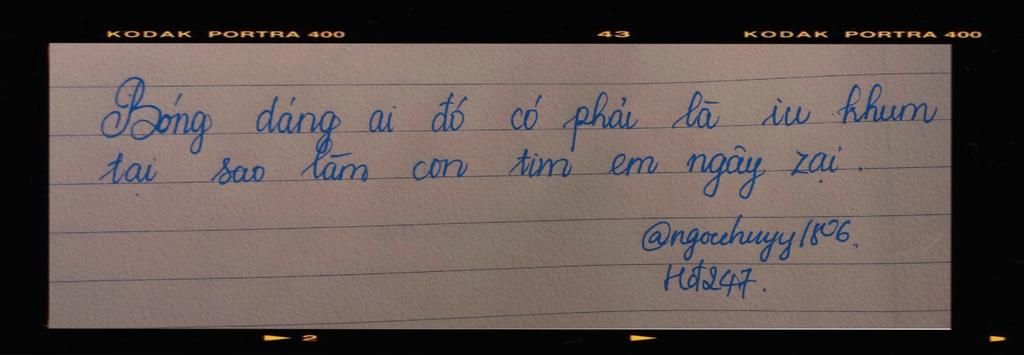 KODAK PORTRA 400 43 KODAK PORTRA 400
Bóng dáng ai đó có phải là iu khum
tại sao làm con tim em ngây zại.
@ngocchuyy1806.
Hđ247.
2